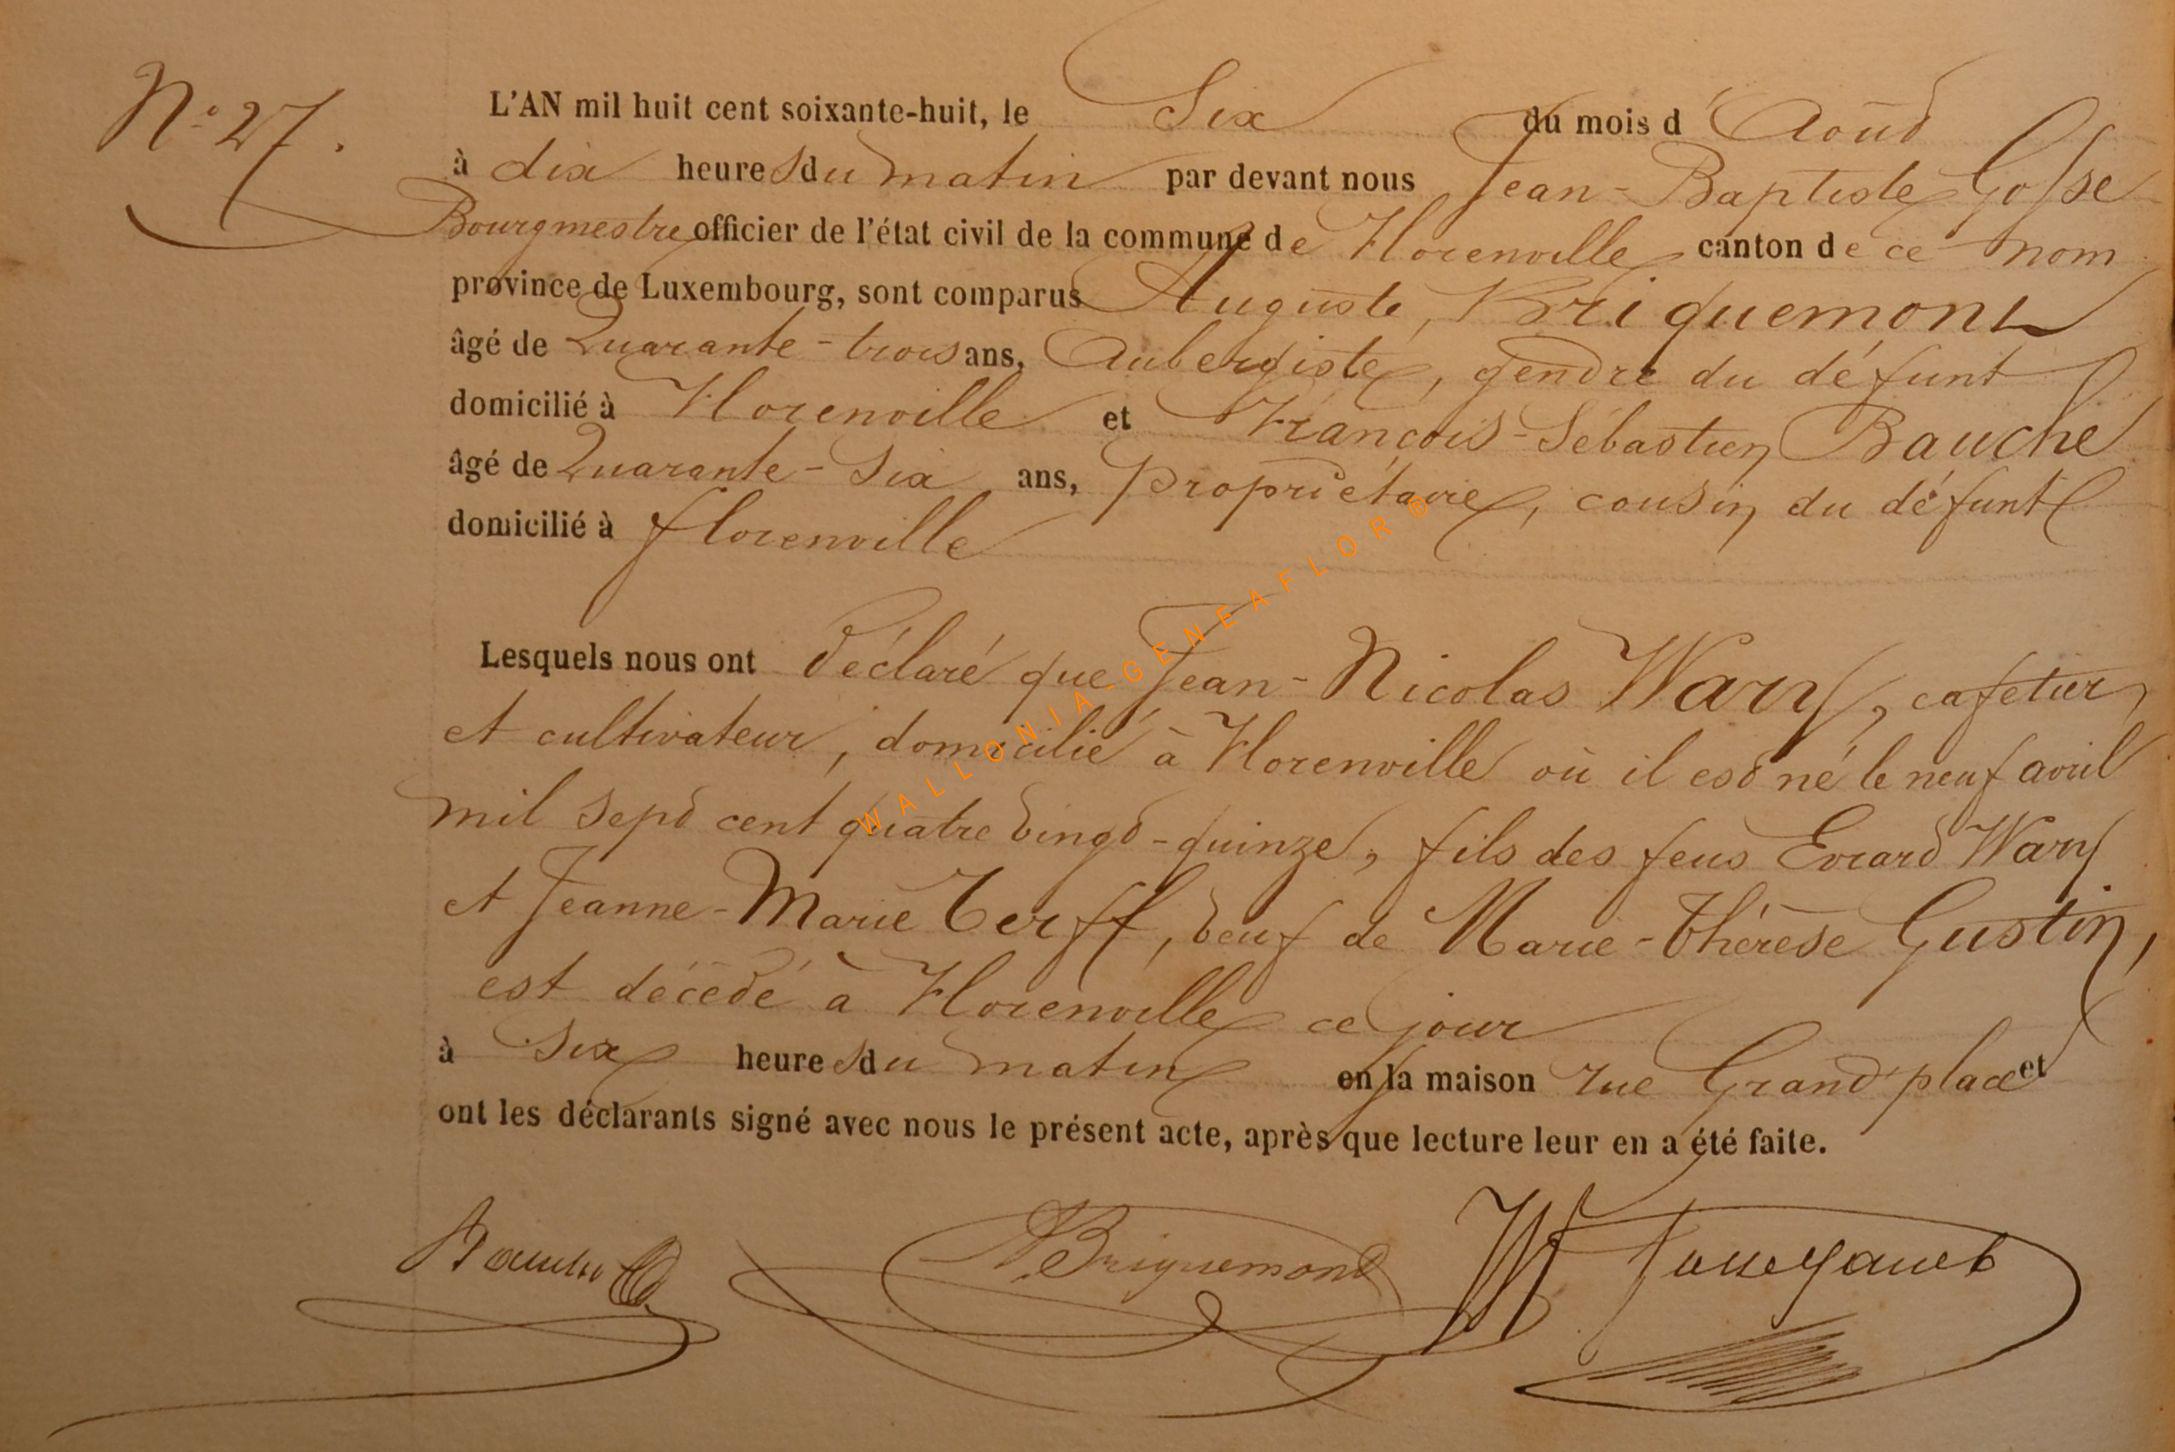 N° 27.
L'AN mil huit cent soixante-huit, le Six du mois d'Août
à dix heures du matin par devant nous Jean-Baptiste Gosse
Bourgmestre officier de l'état civil de la commune de Florenville canton de ce nom
province de Luxembourg, sont comparus Auguste Briquemont
âgé de Quarante-trois ans, Aubergiste, gendre du défunt
domicilié à Florenville et François-Sébastien Bauche
âgé de Quarante-Six ans, propriétaire, cousin du défunt
domicilié à florenville
Lesquels nous ont déclaré que Jean-Nicolas Wary, cafetier
et cultivateur, domicilié à Florenville où il est né le neuf avril
mil sept cent quatre vingt-quinze, fils des feus Evrard Wary
et Jeanne-Marie Terff, veuf de Marie-Thérèse Gustin,
est décédé à Florenville ce jour
à Six heures du matin en la maison rue Grand'place et
ont les déclarants signé avec nous le présent acte, après que lecture leur en a été faite.
Briquemont
WALLONIA-GENEAFLOR®